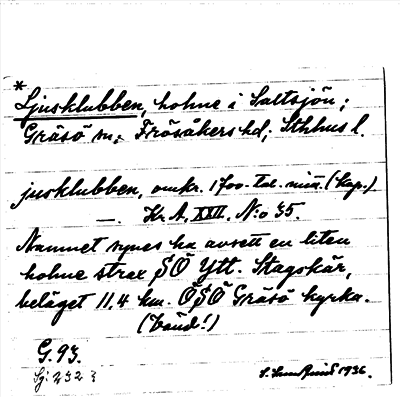 *
Ljusklubben, holme i Saltsjön;
Gräsö sn; Frösåkers hd; Sthlms l.
jusklubben, omkr. 1700-tal. min. (kop.)
—. Kr. A. XXII. N:o 35.
Namnet synes ha avsett en liten
holme strax SÖ Ytt. Stagskär,
beläget 11,4 km. ÖSÖ Gräsö kyrka.
(bänd!)
G. 93.
Sj 232
1936.